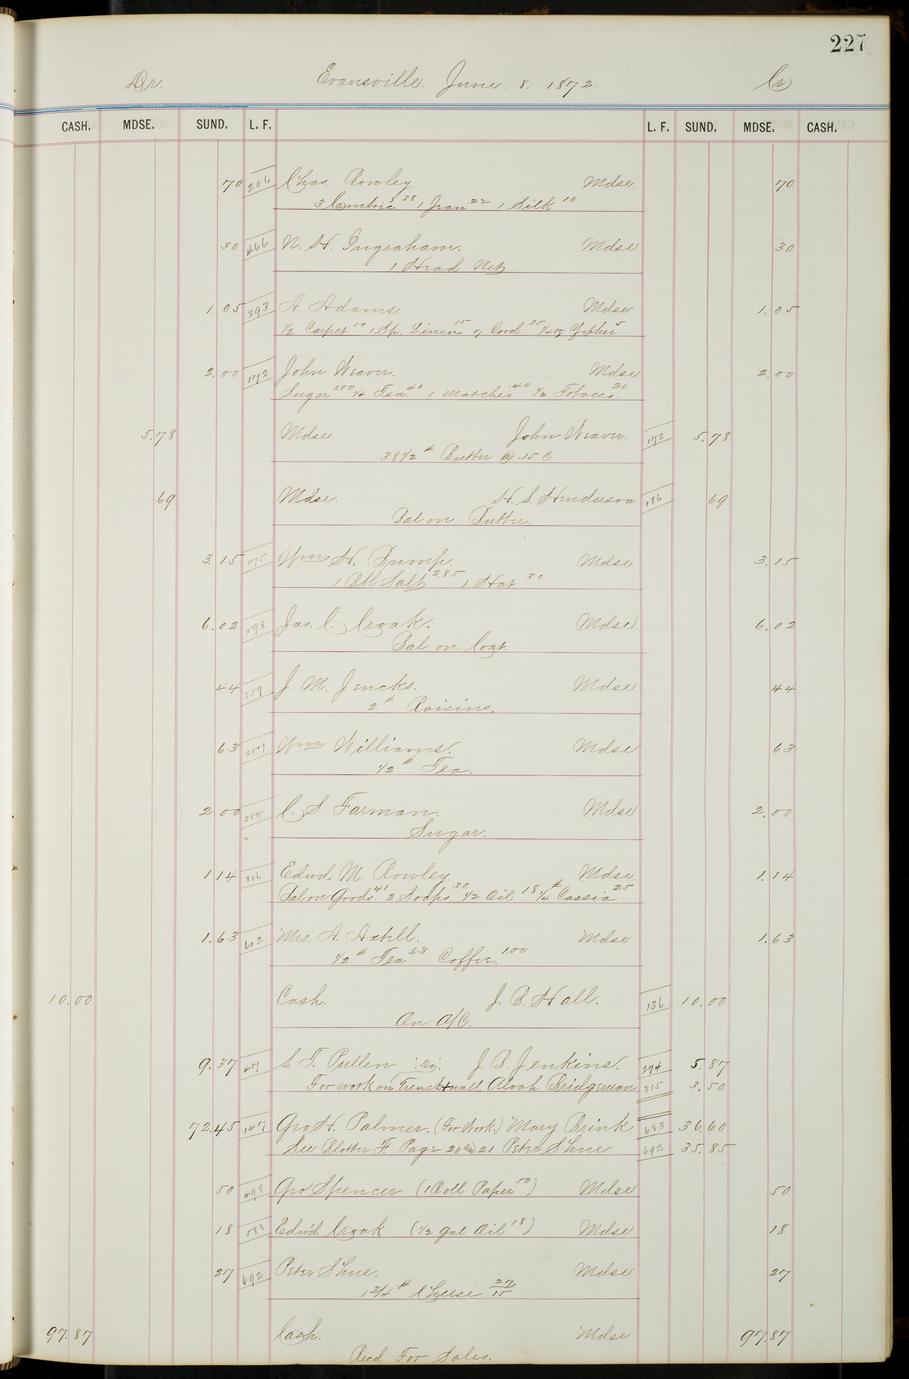 227
Dr. Evansville. June. 8. 1872. Cr
CASH. MDSE. SUND. L. F. L. F. SUND. MDSE. CASH.
70 306 Chas. Rowley Mdse. 70
3 Cambric 38 1 Jean 22 1 Silk 10
30 466 N. H. Ingraham. Mdse 30
1 Head Net
1.05 393 A. Adams Mdse 1.05
1/2 Carpet 50 1 Sp. Linen 15 7 Cord 35 1/2 oz Zepher 5
2.00 172 John Weaver. Mdse 2.00
Sugar 1.00 1/4 Tea. 40 1 Matches 40 1/2 Tobacco. 20
5.78 Mdse John Weaver. 172 5.78
38 1/2 # Butter @ .15 C
69 Mdse. H. S. Henderson 156 69
Bal on Butter.
3.15 175 Wm H. Bump. Mdse 3.15
1 Bbl Salt 2.85 1 Hat 30
6.02 Jas. C. Croak. Mdse 6.02
Bal on Coat.
44 359 J. M. Jencks. Mdse 44
2 # Raisins.
63 Wm Williams. Mdse 63
1/2 # Tea.
2 00 C. S. Farman. Mdse 2.00
Sugar.
1 14 306 Edwd. M. Rowley Mdse. 1.14
Bal on Goods. 41 2 Soaps 30 1/2 Oil 18 1/4 # Cassia 25
1.63 602 Mrs. A. Axtell. Mdse 1.63
1/2 # Tea 63 Coffee. 1.00
10.00 Cash. J. B. Hall. 136 10.00
On A/C.
9.37 S. T. Pullen Dr. J. B. Jenkins. 274 5.87
For work on Trench & wall Alvah Bridgeman 315 3.50
72.45 147 Geo H. Palmer. (For Work.) Mary Brink 683 36.60
See Blotter F Page 20 & 21 Peter Shue 692 35.85
50 498 Geo Spencer (1 Roll Paper 50) Mdse 50
18 588 Edw'd Croak (1/2 gal Oil 18) Mdse 18
27 692 Peter Shue. Mdse 27
1 3/4 # Cheese 27/15
97.87 Cash. Mdse 97.87
Recd For Sales.